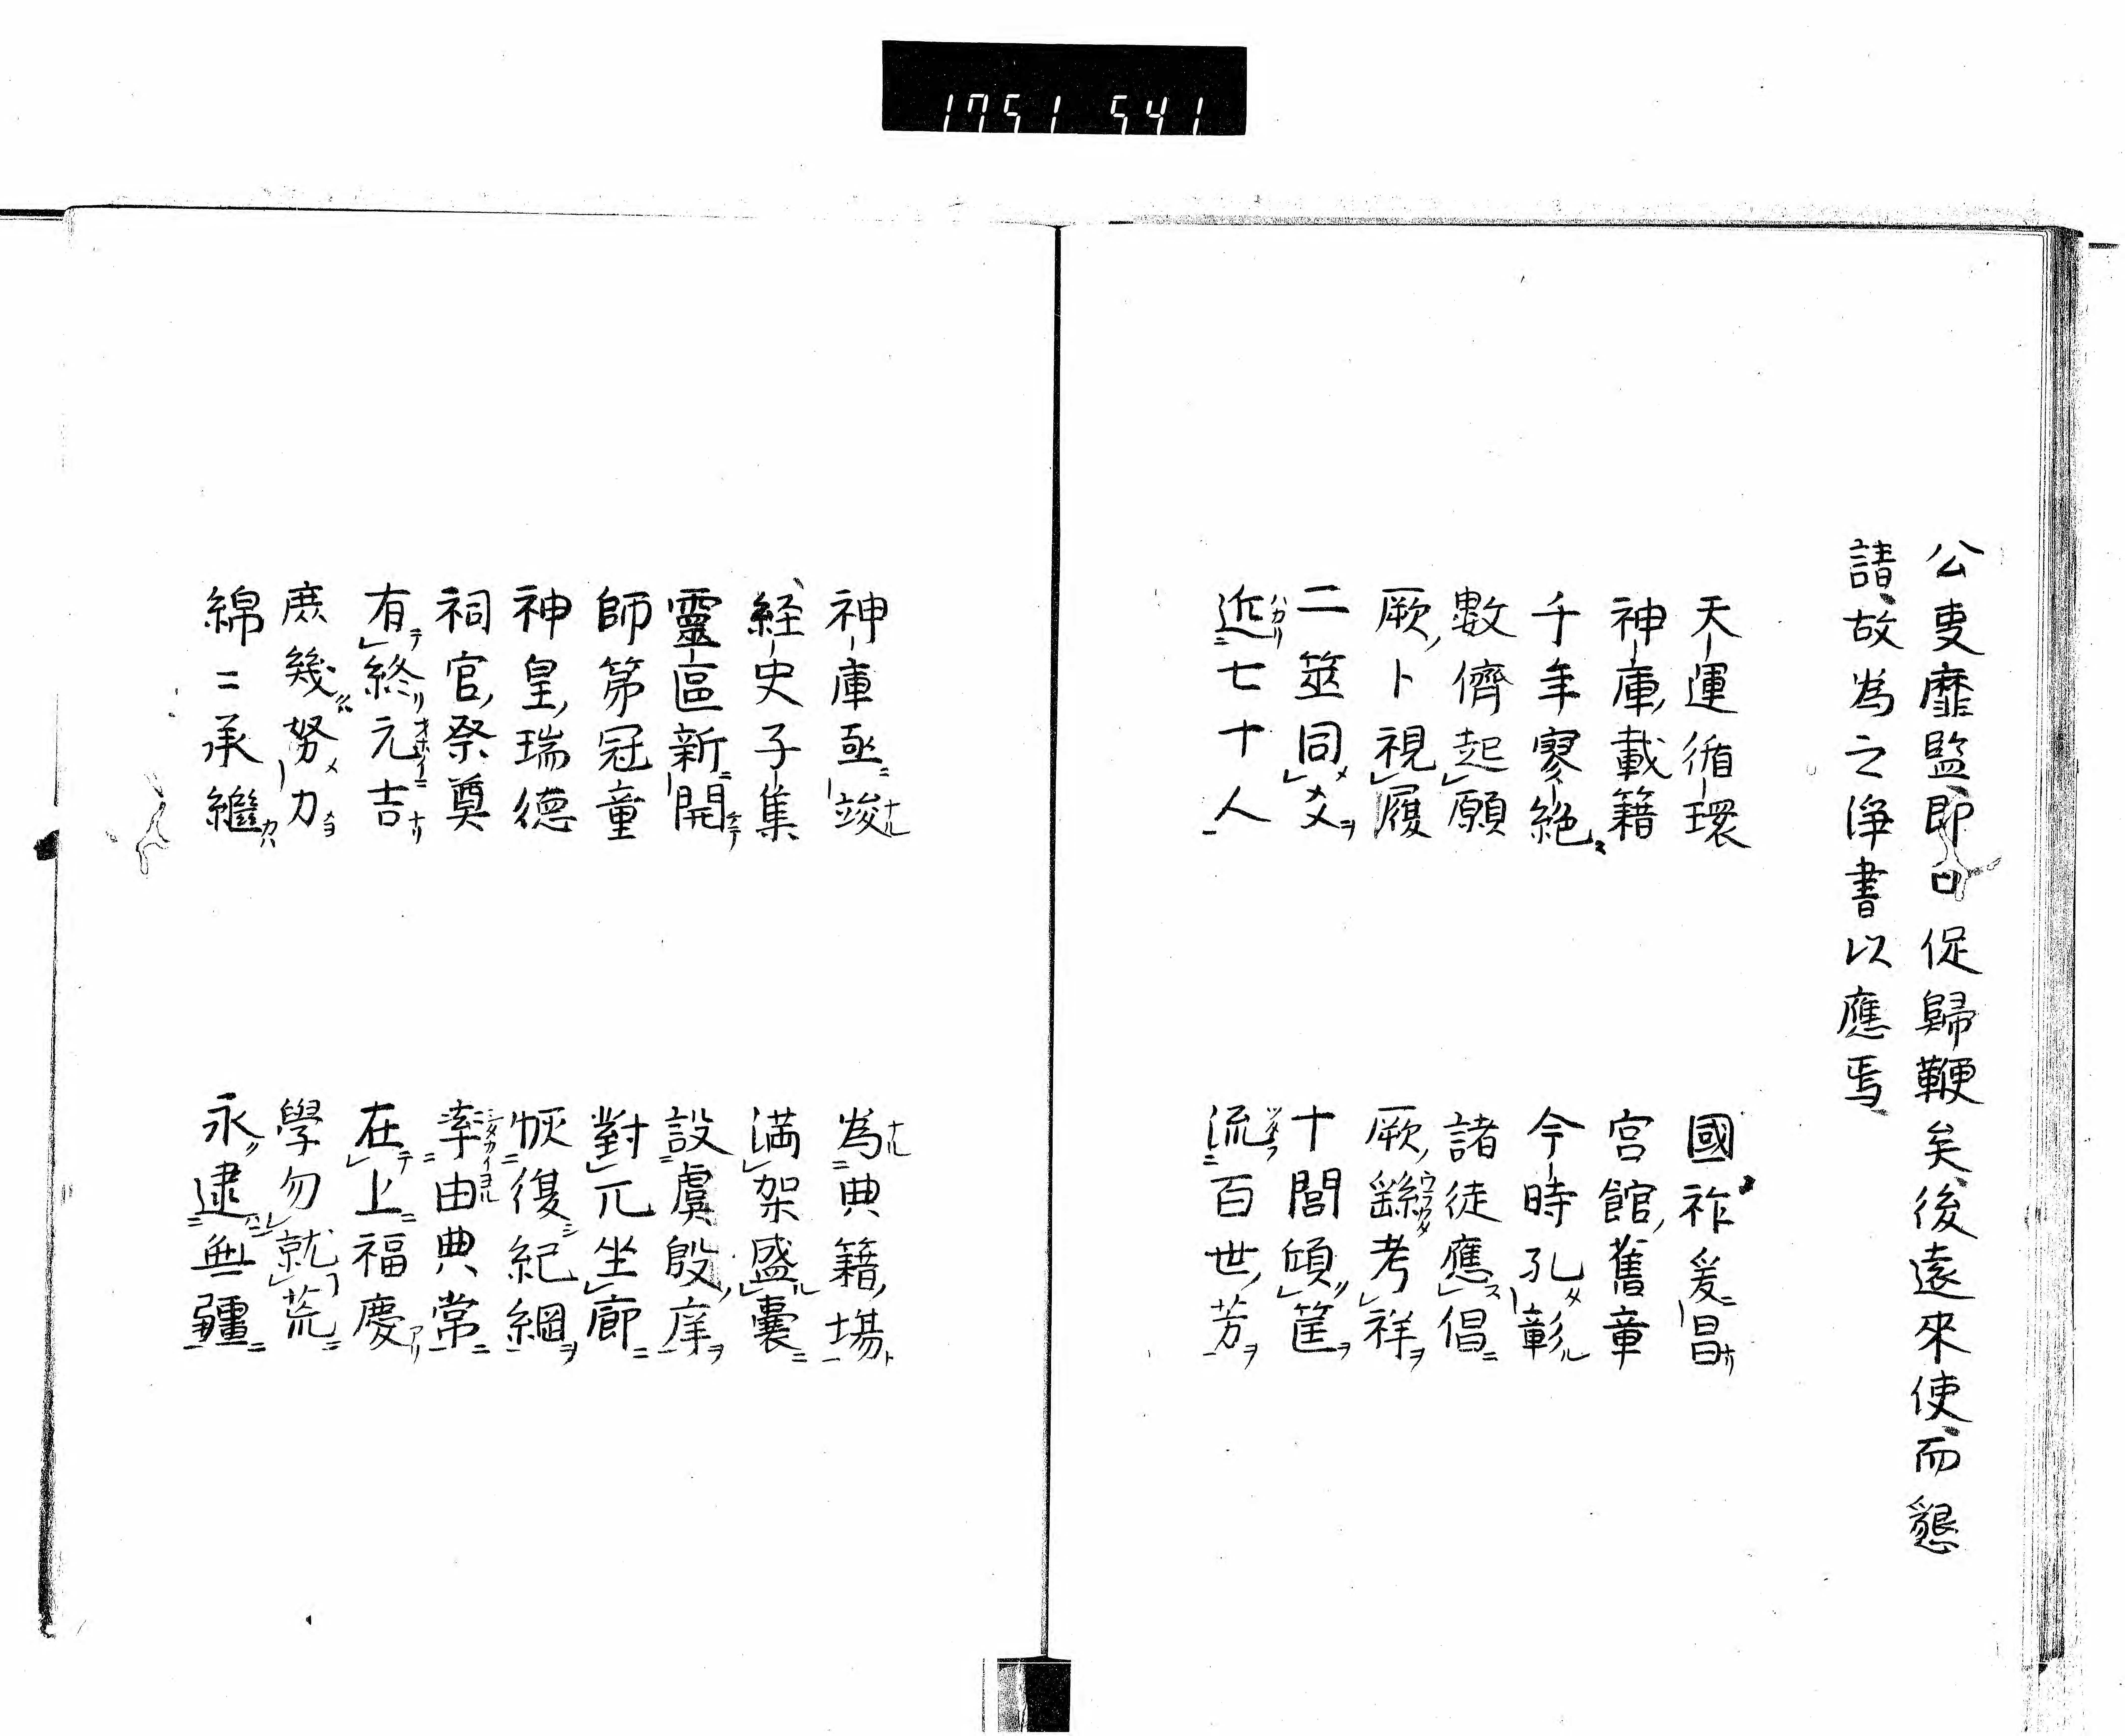 1751 541
公吏靡監即口促歸鞭矣後遠來使而懇
請故為之浄書以應焉
天運循環 國祚爰昌
神庫載籍 宮館舊章
千年寥絶 今時孔彰
數儕起願 諸徒應倡
厥卜視履 厥繇考祥
二筮同爻 十閭頃筐
近七十人 流百世芳
神庫亟竣 為典籍場
経史子集 満架盛囊
靈區新開 設虞殷庠
師第冠童 對兀坐廊
神皇瑞德 恢復紀綱
祠官祭奠 率由典常
有終元吉 在上福慶
庶幾努力 學勿就荒
綿〻承繼 永逮無疆